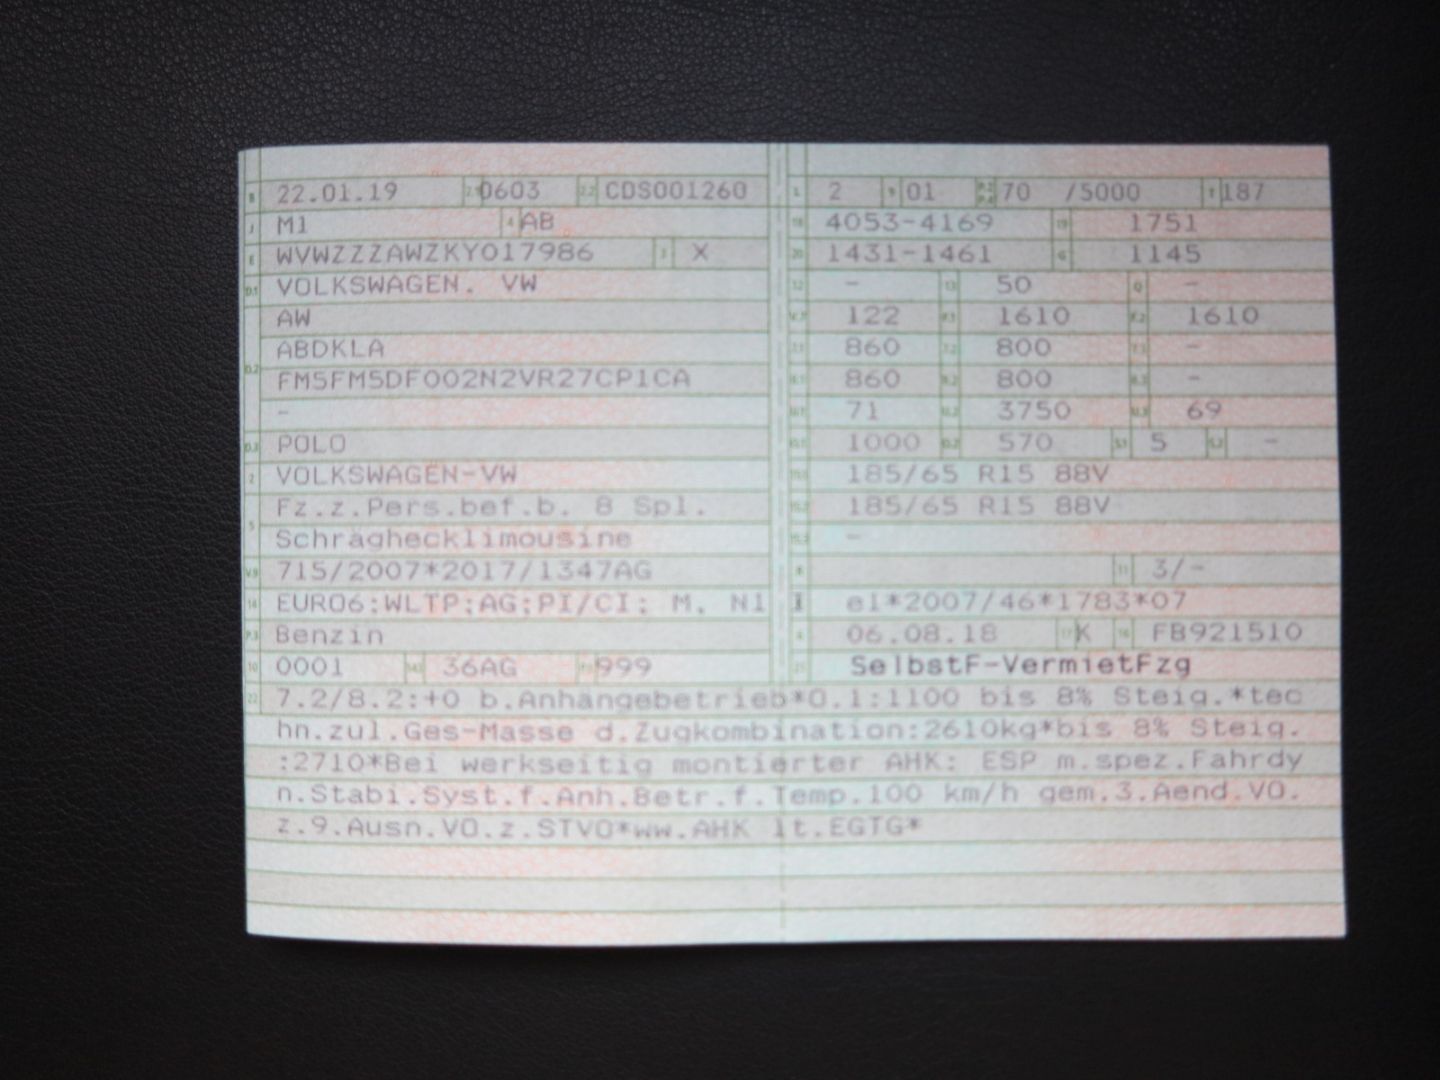 B 22.01.19 2.1 0603 2.2 CDS001260
J M1 4 AB
E WVWZZZAWZKY017986 3 X
D.1 VOLKSWAGEN. VW
AW
D.2 ABDKLA
FM5FM5DF002N2VR27CP1CA
-
D.3 POLO
2 VOLKSWAGEN-VW
Fz.z.Pers.bef.b. 8 Spl.
5 Schräghecklimousine
V.9 715/2007*2017/1347AG
14 EURO6;WLTP;AG;PI/CI; M, N1
P.3 Benzin
10 0001 14.1 36AG P.1 999
L 2 9 01 P.2 P.4 70 /5000 T 187
18 4053-4169 19 1751
20 1431-1461 G 1145
12 - 13 50 Q -
V.7 122 F.1 1610 F.2 1610
7.1 860 7.2 800 7.3 -
8.1 860 8.2 800 8.3 -
U.1 71 U.2 3750 U.3 69
O.1 1000 O.2 570 S.1 5 S.2 -
15.1 185/65 R15 88V
15.2 185/65 R15 88V
15.3 -
R 11 3/-
K e1*2007/46*1783*07
6 06.08.18 17 K 16 FB921510
21 SelbstF-VermietFzg
22 7.2/8.2:+0 b.Anhängebetrieb*O.1:1100 bis 8% Steig.*tec
hn.zul.Ges-Masse d.Zugkombination:2610kg*bis 8% Steig.
:2710*Bei werkseitig montierter AHK: ESP m.spez.Fahrdy
n.Stabi.Syst.f.Anh.Betr.f.Temp.100 km/h gem.3.Aend.VO.
z.9.Ausn.VO.z.STVO*ww.AHK lt.EGTG*